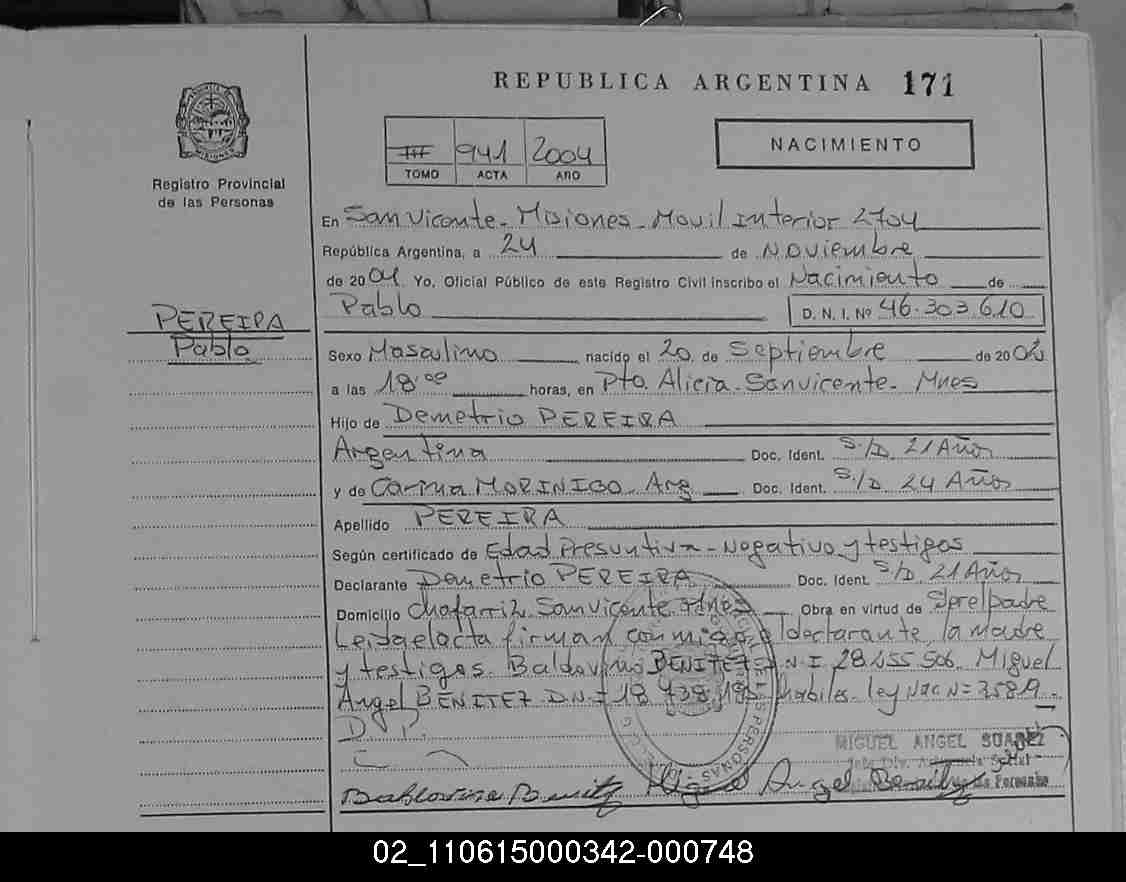 REPUBLICA ARGENTINA 171
MISIONES
Registro Provincial
de las Personas
III 941 2004
TOMO ACTA AÑO
NACIMIENTO
En San Vicente - Misiones - Movil Interior 2704
República Argentina, a 24 de Noviembre
de 2004 Yo, Oficial Público de este Registro Civil inscribo el Nacimiento de
Pablo D. N. I. Nº 46.303.610
PEREIRA
Pablo
Sexo Masculino nacido el 20 de Septiembre de 2002
a las 18 ºº horas, en Pto. Alicia - San Vicente - Mnes
Hijo de Demetrio PEREIRA
Argentina Doc. Ident. S/D 21 Años
y de Carina MORINIGO Arg Doc. Ident. S/D 24 Años
Apellido PEREIRA
Según certificado de Edad Presuntiva - Negativo y testigos
Declarante Demetrio PEREIRA Doc. Ident. S/D 21 Años
Domicilio San Vicente Obra en virtud de
Leida el acta firman conmigo el declarante, la madre
y testigos Baldovino BENITEZ D.N.I 28.255.506 Miguel
Angel BENITEZ D.N.I 18 habiles ley Nac Nº
MIGUEL ANGEL SUAREZ
Miguel Angel Benitez
02_110615000342-000748